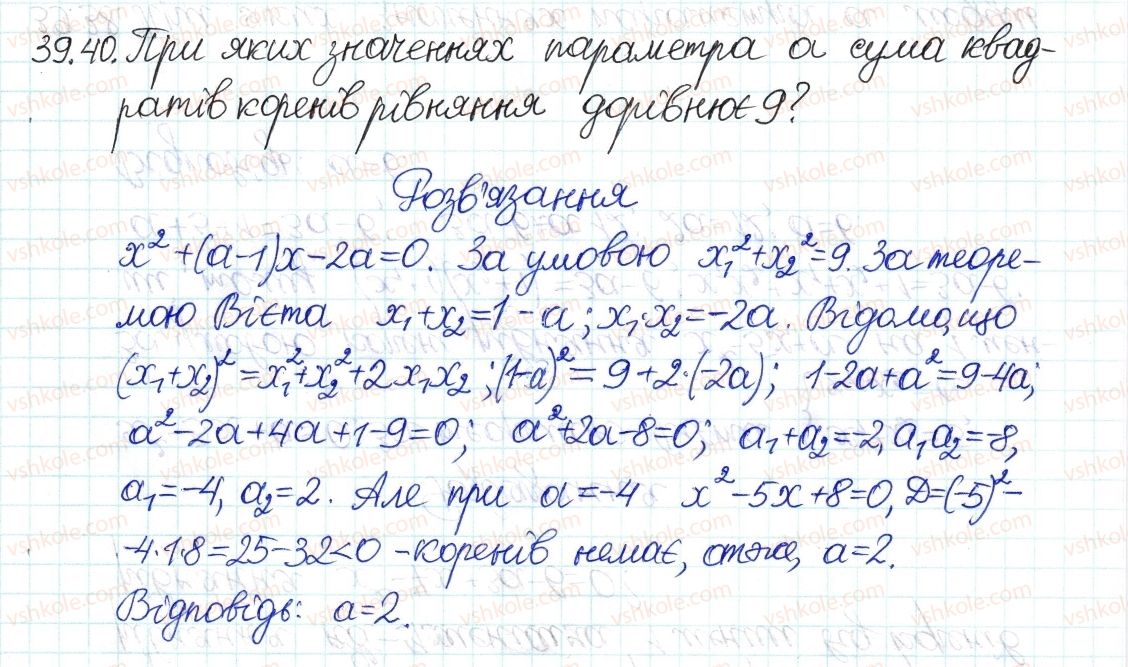 39.40. При яких значеннях параметра a сума квад-
ратів коренів рівняння дорівнює 9?
Розв'язання
x²+(a-1)x-2a=0. За умовою x₁²+x₂²=9. За теоре-
мою Вієта x₁+x₂=1-a; x₁·x₂=-2a. Відомо, що
(x₁+x₂)²=x₁²+x₂²+2x₁x₂; (1-a)²=9+2·(-2a); 1-2a+a²=9-4a;
a²-2a+4a+1-9=0; a²+2a-8=0; a₁+a₂=-2, a₁a₂=-8,
a₁=-4, a₂=2. Але при a=-4 x²-5x+8=0, D=(-5)²-
-4·1·8=25-32<0 - коренів немає, отже, a=2.
Відповідь: a=2.